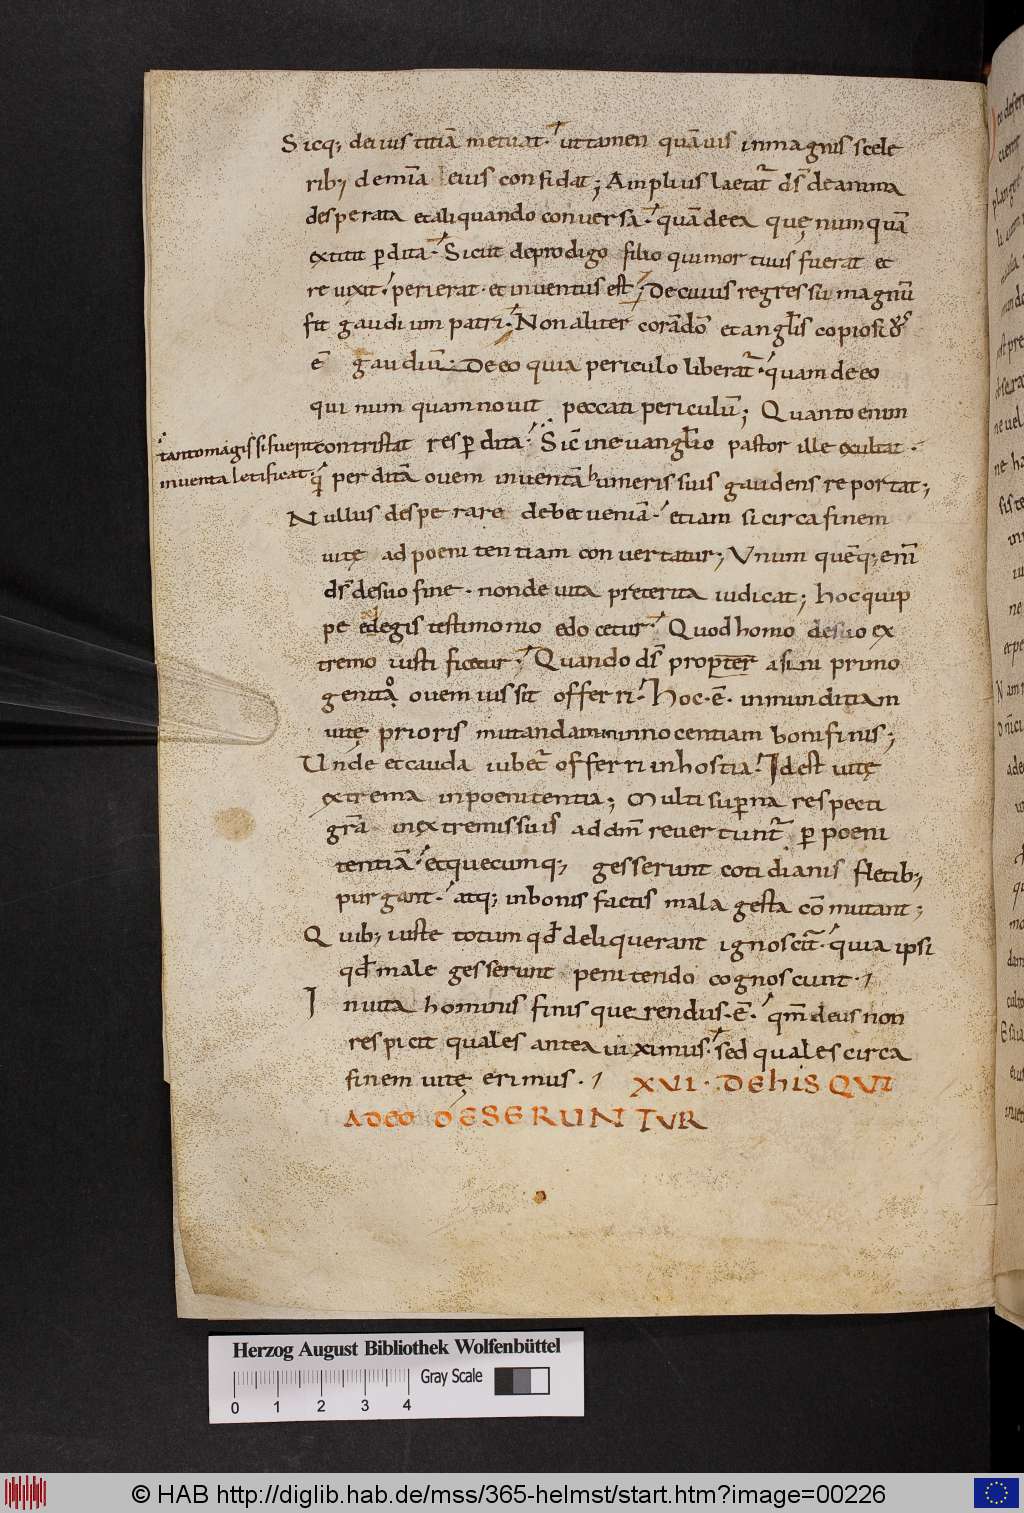 Sicq; dei iustitiā metuat· ut tamen quāuis inmagnis scele
rib; demīa eius confidat; Amplius laetat̄ ds̄ deanima
desperata et aliquando conuersa· quā deea quę numquā
extitit ꝑdita· Sicut deprodigo filio qui mortuus fuerat et
reuixit· perierat· et inuentus est; De cuius regressu magnū
fit gaudium patri· Non aliter corā dō et anglis copiosior
ē gaudiū· De eo quia periculo liberat̄· quam de eo
qui num quam nouit peccati periculū; Quanto enim
contristat res ꝑdita· Sic̄ in euanglio pastor ille exultat·
tanto magis si fuerit
inuenta letificat·
qͥ perditā ouem inuentā humeris suis gaudens reportat;
Nullus desperare debet ueniā· etiam si circa finem
uitę ad poenitentiam conuertatur; Unum quēq; enī
ds̄ desuo fine· non de uita preterita iudicat; hoc quip
pe edlegis testimonio edocetur· Quod homo desuo ex
tremo iustificetur· Quando ds̄ propter asini primo
genitą ouem iussit offerri· hoc· ē· inmunditiam
uitę prioris mutandam innocentiam boni finis;
Unde et cauda iubet̄ offerri inhostia· Id est uitę
extrema inpoenitentia; Multi superna respecti
gr̄a inextremis suis ad dm̄ reuertunt̄ ꝑ poeni
tentiā· et quecumq; gesserunt cotidianis fletib;
purgant· atq; inbonis factis mala gesta cōmutant;
Quib; iuste totum qd̄ deliquerant ignoscit̄· quia ipsi
qd̄ male gesserunt penitendo cognoscunt·
In uita hominis finis querendus· ē· qm̄ deus non
respicit quales antea uiximus· sed quales circa
finem uitę erimus· XVI· DE hIS QVI
A DEO DESERUNTUR
Herzog August Bibliothek Wolfenbüttel
Gray Scale
0 1 2 3 4
© HAB http://diglib.hab.de/mss/365-helmst/start.htm?image=00226